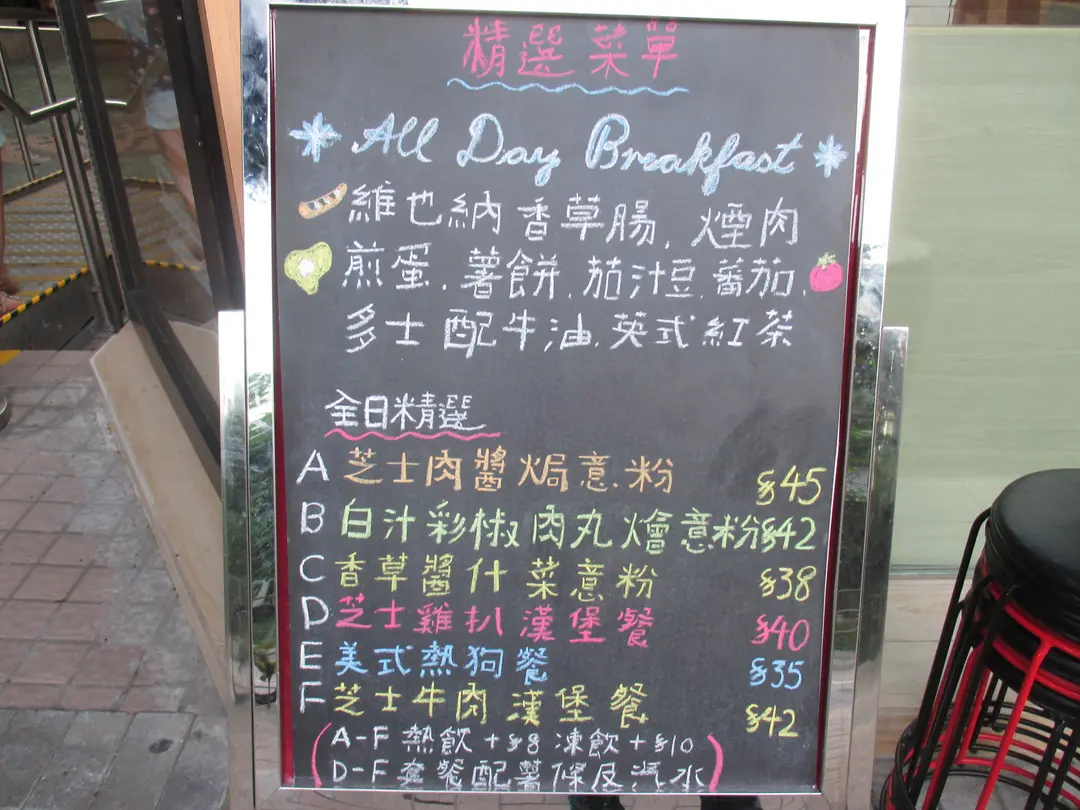 精選菜單
All Day Breakfast
維也納香草腸, 煙肉
煎蛋, 薯餅, 茄汁豆, 蕃茄,
多士配牛油, 英式紅茶
全日精選
A 芝士肉醬焗意粉 $45
B 白汁彩椒肉丸燴意粉 $42
C 香草醬什菜意粉 $38
D 芝士雞扒漢堡餐 $40
E 美式熱狗餐 $35
F 芝士牛肉漢堡餐 $42
(A-F 熱飲 +$8 凍飲 +$10
D-F 套餐配薯條及汽水)